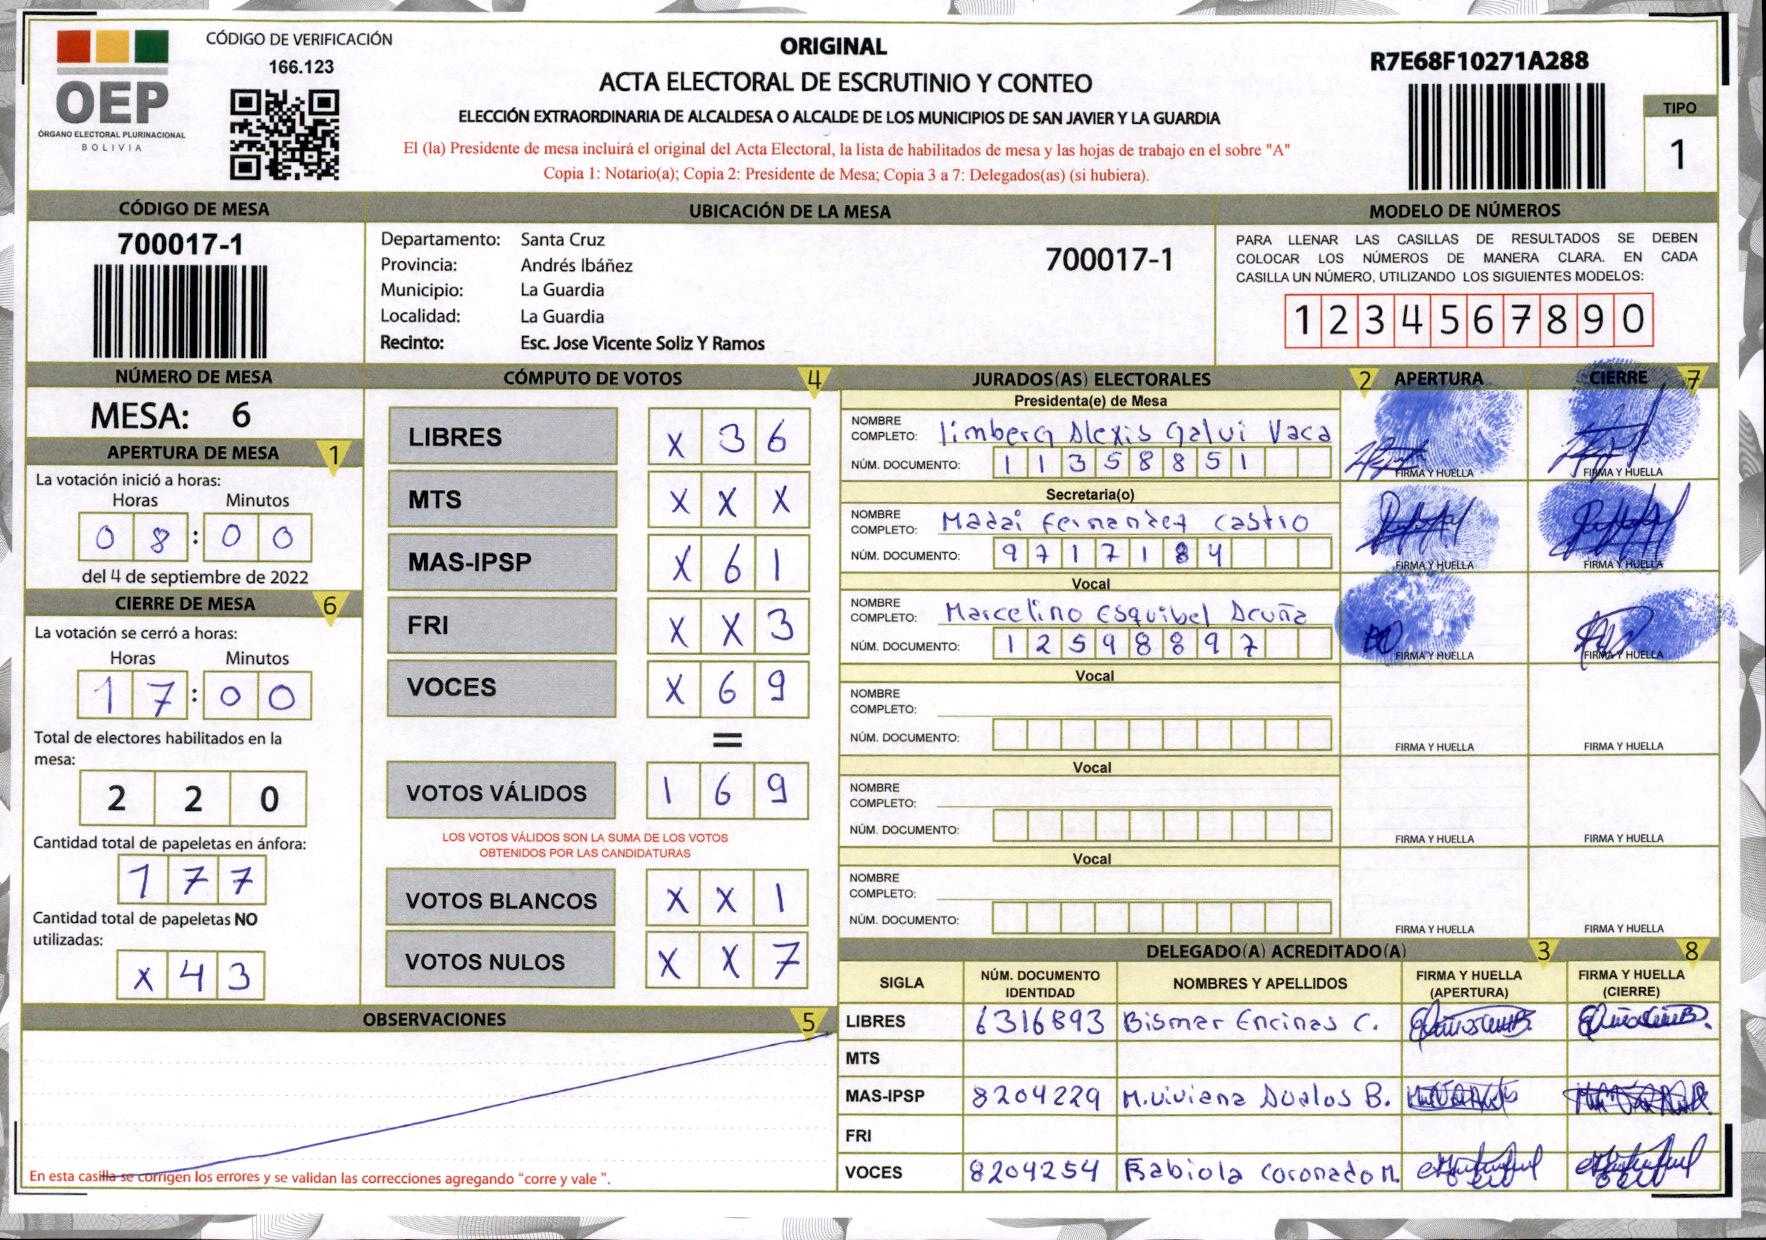 CÓDIGO DE VERIFICACIÓN
166.123
OEP
ÓRGANO ELECTORAL PLURINACIONAL
BOLIVIA
ORIGINAL
ACTA ELECTORAL DE ESCRUTINIO Y CONTEO
ELECCIÓN EXTRAORDINARIA DE ALCALDESA O ALCALDE DE LOS MUNICIPIOS DE SAN JAVIER Y LA GUARDIA
El (la) Presidente de mesa incluirá el original del Acta Electoral, la lista de habilitados de mesa y las hojas de trabajo en el sobre "A"
Copia 1: Notario(a); Copia 2: Presidente de Mesa; Copia 3 a 7: Delegados(as) (si hubiera).
R7E68F10271A288
TIPO
1
CÓDIGO DE MESA
700017-1
UBICACIÓN DE LA MESA
Departamento: Santa Cruz
Provincia: Andrés Ibáñez
Municipio: La Guardia
Localidad: La Guardia
Recinto: Esc. Jose Vicente Soliz Y Ramos
700017-1
MODELO DE NÚMEROS
PARA LLENAR LAS CASILLAS DE RESULTADOS SE DEBEN
COLOCAR LOS NÚMEROS DE MANERA CLARA. EN CADA
CASILLA UN NÚMERO, UTILIZANDO LOS SIGUIENTES MODELOS:
1 2 3 4 5 6 7 8 9 0
NÚMERO DE MESA
MESA: 6
APERTURA DE MESA 1
La votación inició a horas:
Horas Minutos
0 8 : 0 0
del 4 de septiembre de 2022
CIERRE DE MESA 6
La votación se cerró a horas:
Horas Minutos
1 7 : 0 0
Total de electores habilitados en la
mesa:
2 2 0
Cantidad total de papeletas en ánfora:
1 7 7
Cantidad total de papeletas NO
utilizadas:
x 4 3
CÓMPUTO DE VOTOS 4
LIBRES X 3 6
MTS X X X
MAS-IPSP X 6 1
FRI X X 3
VOCES X 6 9
=
VOTOS VÁLIDOS 1 6 9
LOS VOTOS VÁLIDOS SON LA SUMA DE LOS VOTOS
OBTENIDOS POR LAS CANDIDATURAS
VOTOS BLANCOS X X 1
VOTOS NULOS X X 7
OBSERVACIONES 5
En esta casilla se corrigen los errores y se validan las correcciones agregando "corre y vale ".
JURADOS(AS) ELECTORALES 2 APERTURA CIERRE 7
Presidenta(e) de Mesa
NOMBRE
COMPLETO: limberg Alexis Galvi Vaca
NÚM. DOCUMENTO: 1 1 3 5 8 8 5 1
FIRMA Y HUELLA FIRMA Y HUELLA
Secretaria(o)
NOMBRE
COMPLETO: Madai Fernandez Castro
NÚM. DOCUMENTO: 9 7 1 7 1 8 4
FIRMA Y HUELLA FIRMA Y HUELLA
Vocal
NOMBRE
COMPLETO: Marcelino Esquibel Acuña
NÚM. DOCUMENTO: 1 2 5 9 8 8 9 7
FIRMA Y HUELLA FIRMA Y HUELLA
Vocal
NOMBRE
COMPLETO:
NÚM. DOCUMENTO:
FIRMA Y HUELLA FIRMA Y HUELLA
Vocal
NOMBRE
COMPLETO:
NÚM. DOCUMENTO:
FIRMA Y HUELLA FIRMA Y HUELLA
Vocal
NOMBRE
COMPLETO:
NÚM. DOCUMENTO:
FIRMA Y HUELLA FIRMA Y HUELLA
DELEGADO(A) ACREDITADO(A) 3 8
SIGLA NÚM. DOCUMENTO IDENTIDAD NOMBRES Y APELLIDOS FIRMA Y HUELLA (APERTURA) FIRMA Y HUELLA (CIERRE)
LIBRES 6316893 Bismar Encinas C.
MTS
MAS-IPSP 8204229 M.viviana Avalos B.
FRI
VOCES 8204254 Fabiola Coronado M.